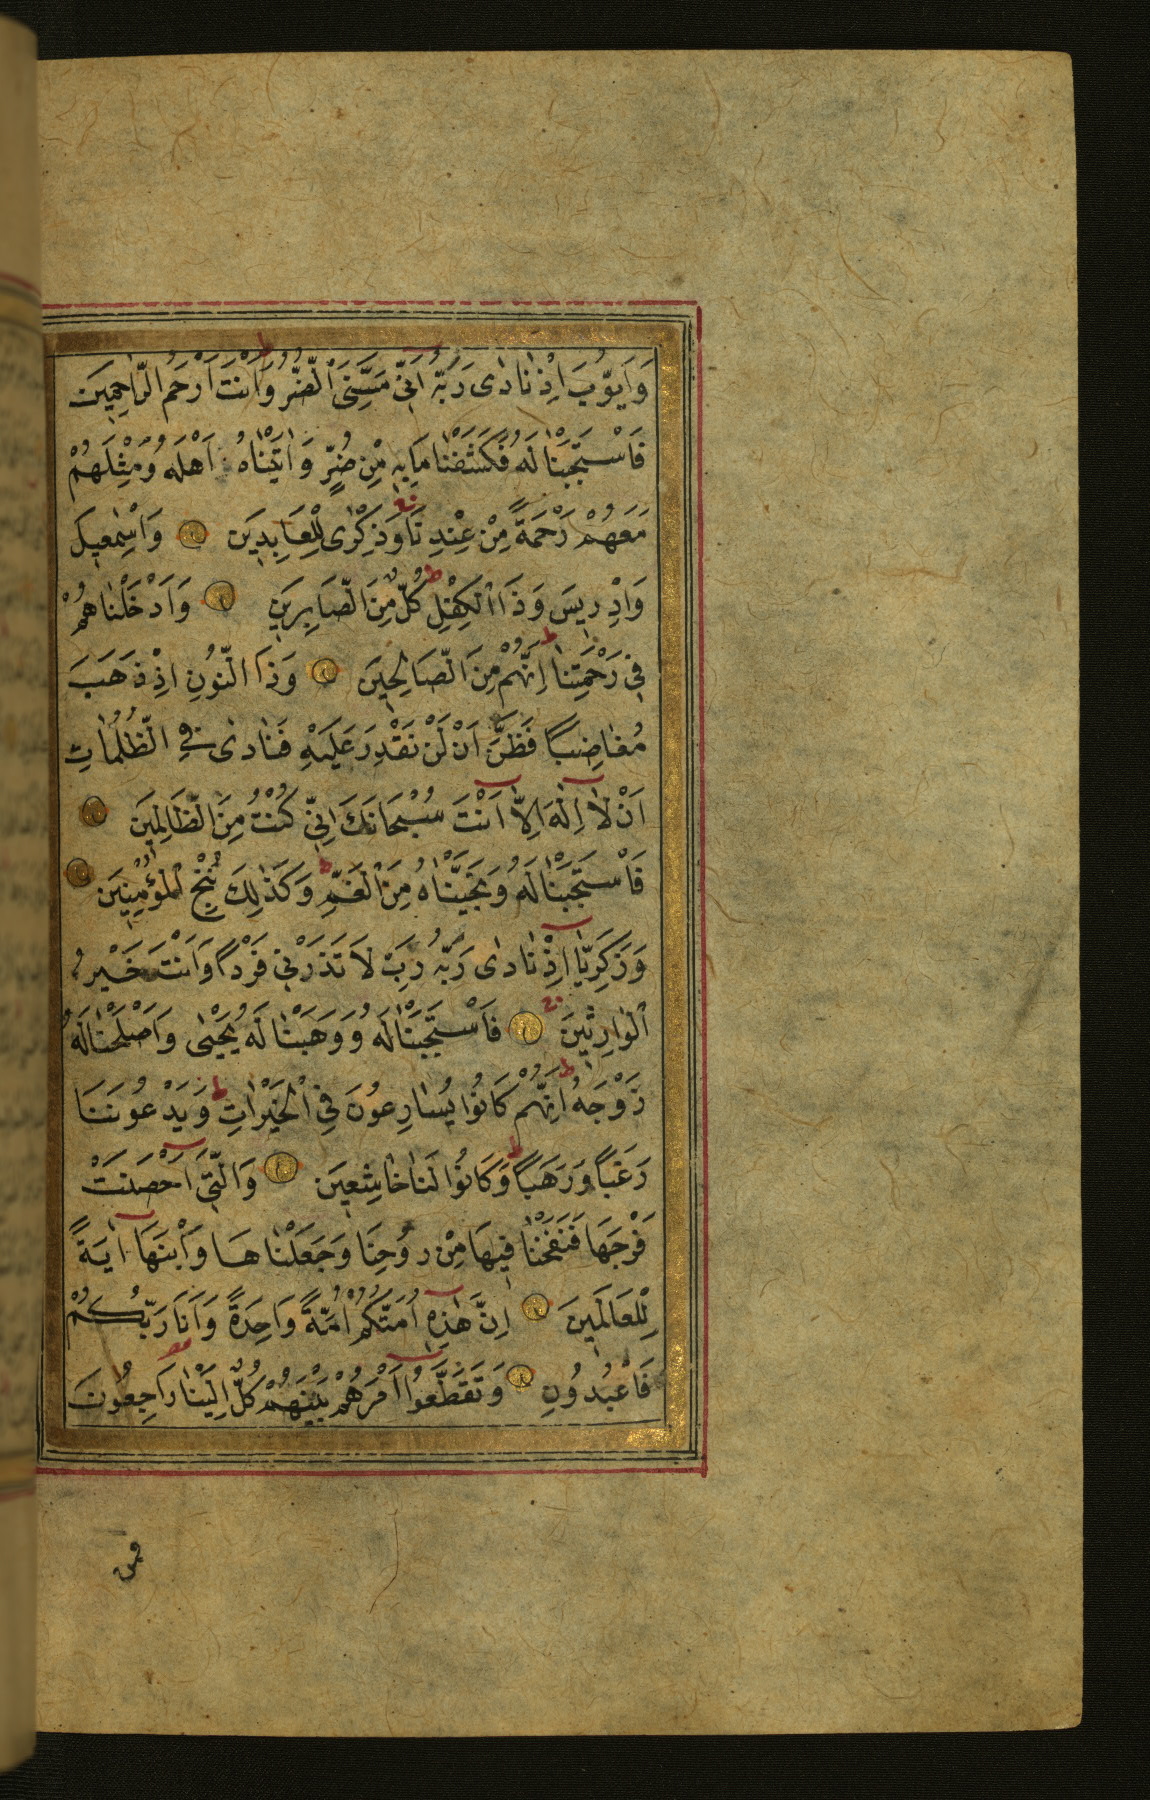 وَاَيُّوبَ اِذْ نَادٰى رَبَّهُ اَنّٖى مَسَّنِىَ الضُّرُّ وَاَنْتَ اَرْحَمُ الرَّاحِمِينَ
فَاسْتَجَبْنَا لَهُ فَكَشَفْنَا مَا بِهِ مِنْ ضُرٍّ وَاٰتَيْنَاهُ اَهْلَهُ وَمِثْلَهُمْ
مَعَهُمْ رَحْمَةً مِنْ عِنْدِنَا وَذِكْرٰى لِلْعَابِدِينَ وَاِسْمٰعِيلَ
وَاِدْرِيسَ وَذَا الْكِفْلِ كُلٌّ مِنَ الصَّابِرِينَ وَاَدْخَلْنَاهُمْ
فِى رَحْمَتِنَا اِنَّهُمْ مِنَ الصَّالِحِينَ وَذَا النُّونِ اِذْ ذَهَبَ
مُغَاضِبًا فَظَنَّ اَنْ لَنْ نَقْدِرَ عَلَيْهِ فَنَادٰى فِى الظُّلُمَاتِ
اَنْ لَا اِلٰهَ اِلَّا اَنْتَ سُبْحَانَكَ اِنِّى كُنْتُ مِنَ الظَّالِمِينَ
فَاسْتَجَبْنَا لَهُ وَنَجَّيْنَاهُ مِنَ الْغَمِّ وَكَذٰلِكَ نُنْجِ الْمُؤْمِنِينَ
وَزَكَرِيَّا اِذْ نَادٰى رَبَّهُ رَبِّ لَا تَذَرْنِى فَرْدًا وَاَنْتَ خَيْرُ
الْوَارِثِينَ فَاسْتَجَبْنَا لَهُ وَوَهَبْنَا لَهُ يَحْيٰى وَاَصْلَحْنَا لَهُ
زَوْجَهُ اِنَّهُمْ كَانُوا يُسَارِعُونَ فِى الْخَيْرَاتِ وَيَدْعُونَنَا
رَغَبًا وَرَهَبًا وَكَانُوا لَنَا خَاشِعِينَ وَالَّتِى اَحْصَنَتْ
فَرْجَهَا فَنَفَخْنَا فِيهَا مِنْ رُوحِنَا وَجَعَلْنَاهَا وَابْنَهَا اٰيَةً
لِلْعَالَمِينَ اِنَّ هٰذِهِ اُمَّتُكُمْ اُمَّةً وَاحِدَةً وَاَنَا رَبُّكُمْ
فَاعْبُدُونِ وَتَقَطَّعُوا اَمْرَهُمْ بَيْنَهُمْ كُلٌّ اِلَيْنَا رَاجِعُونَ
فمن